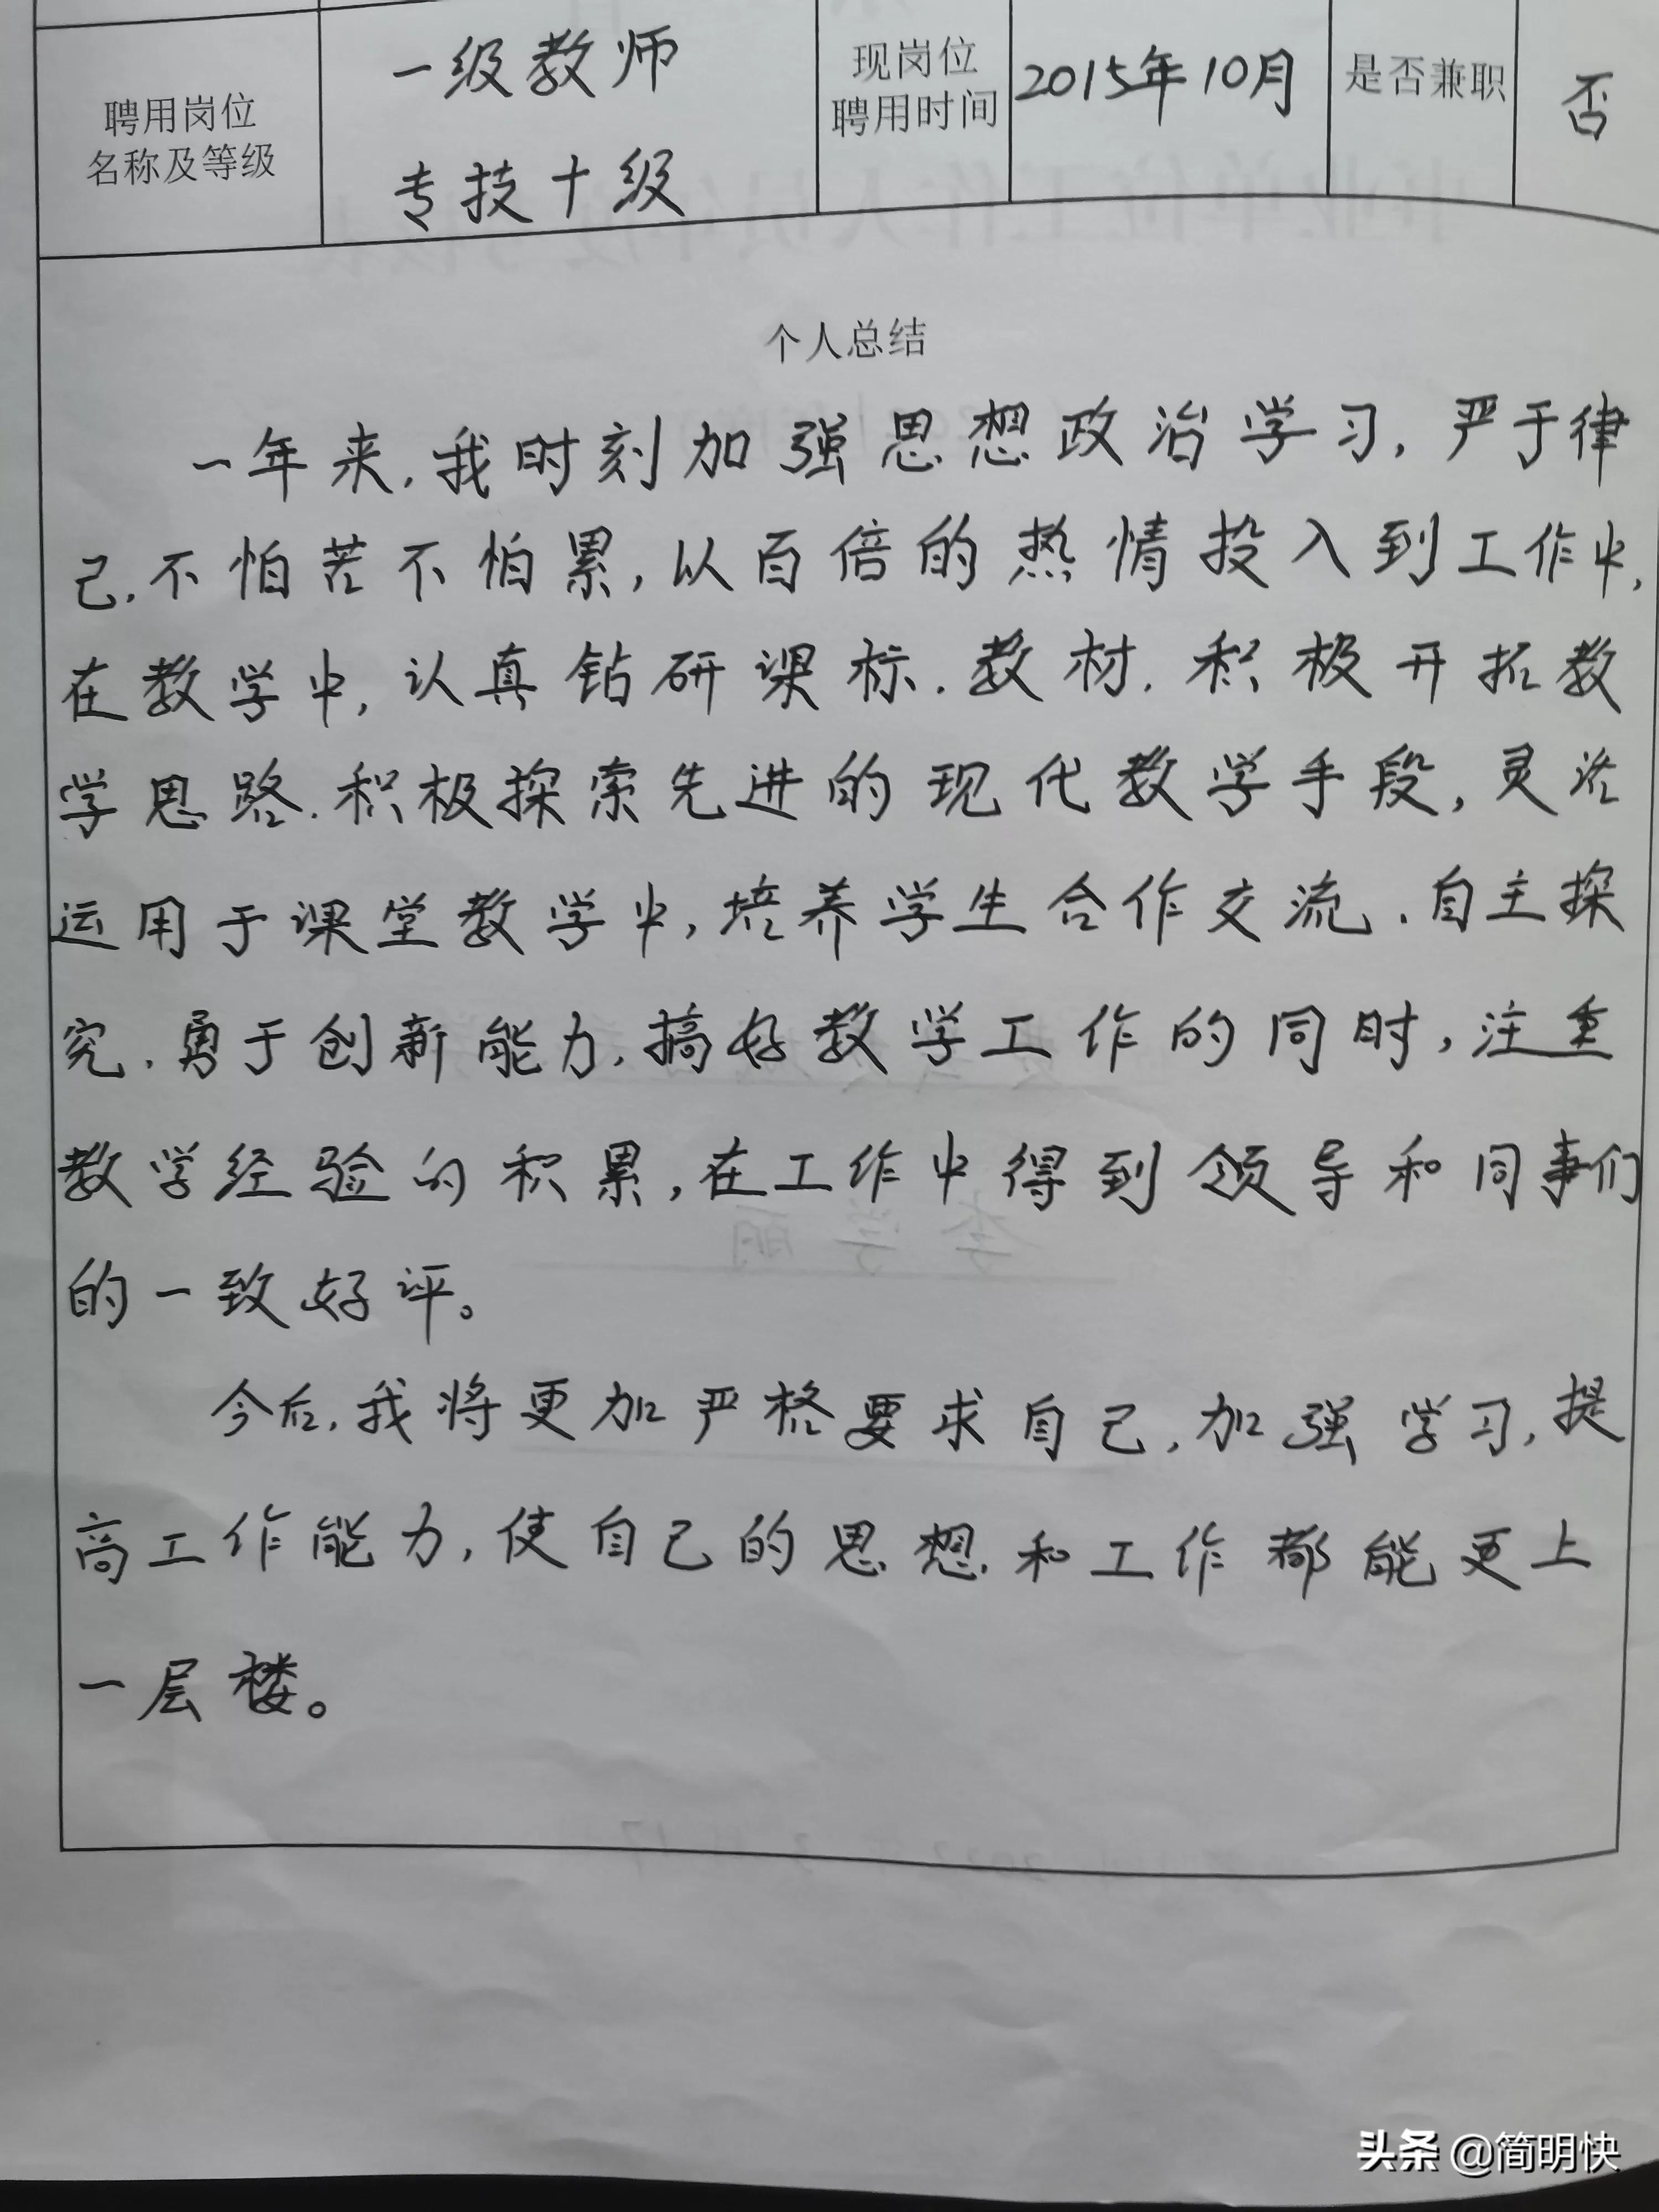 聘用岗位
名称及等级
一级教师
专技十级
现岗位
聘用时间
2015年10月
是否兼职
否
个人总结
一年来,我时刻加强思想政治学习,严于律
己.不怕苦不怕累,以百倍的热情投入到工作中,
在教学中,认真钻研课标.教材.积极开拓教
学思路.积极探索先进的现代教学手段,灵活
运用于课堂教学中,培养学生合作交流.自主探
究.勇于创新能力.搞好教学工作的同时,注重
教学经验的积累,在工作中得到领导和同事们
的一致好评。
今后,我将更加严格要求自己,加强学习,提
高工作能力,使自己的思想.和工作都能更上
一层楼。
头条 @简明快